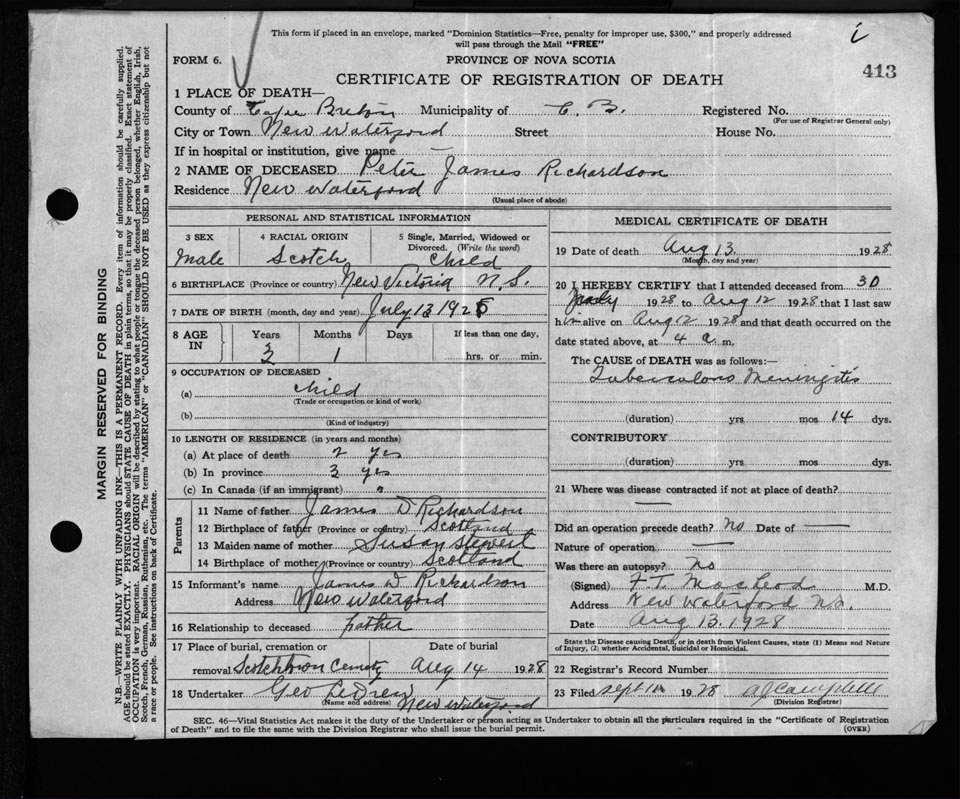 This form if placed in an envelope, marked "Dominion Statistics—Free, penalty for improper use, $300," and properly addressed
will pass through the Mail "FREE"
FORM 6.
PROVINCE OF NOVA SCOTIA
CERTIFICATE OF REGISTRATION OF DEATH
413
1 PLACE OF DEATH—
County of Cape Breton Municipality of C. B. Registered No.
(For use of Registrar General only)
City or Town New Waterford Street House No.
If in hospital or institution, give name —
2 NAME OF DECEASED Peter James Richardson
Residence New Waterford
(Usual place of abode)
PERSONAL AND STATISTICAL INFORMATION
3 SEX 4 RACIAL ORIGIN 5 Single, Married, Widowed or
Divorced. (Write the word)
Male Scotch Child
6 BIRTHPLACE (Province or country) New Victoria N.S.
7 DATE OF BIRTH (month, day and year) July 13 1925
8 AGE IN Years Months Days If less than one day,
3 1 hrs. or min.
9 OCCUPATION OF DECEASED
(a) child
(Trade or occupation or kind of work)
(b)
(Kind of industry)
10 LENGTH OF RESIDENCE (in years and months)
(a) At place of death 2 yes
(b) In province 3 yes
(c) In Canada (if an immigrant) "
Parents
11 Name of father James D Richardson
12 Birthplace of father (Province or country) Scotland
13 Maiden name of mother Susan Stewert
14 Birthplace of mother (Province or country) Scotland
15 Informant's name James D Richardson
Address New Waterford
16 Relationship to deceased father
17 Place of burial, cremation or Date of burial
removal Scotchtown Cemety Aug 14 1928
18 Undertaker Geo LeDrew
(Name and address) New Waterford
MEDICAL CERTIFICATE OF DEATH
19 Date of death Aug 13 1928
(Month, day and year)
20 I HEREBY CERTIFY that I attended deceased from 30
July 1928 to Aug 12 1928 that I last saw
him alive on Aug 12 1928 and that death occurred on the
date stated above, at 4 a. m.
The CAUSE of DEATH was as follows:—
Tuberculous Meningitis
(duration) yrs mos 14 dys.
CONTRIBUTORY
(duration) yrs mos dys.
21 Where was disease contracted if not at place of death?
—
Did an operation precede death? No Date of —
Nature of operation —
Was there an autopsy? No
(Signed) F. T. MacLeod M.D.
Address New Waterford N.S.
Date Aug 13. 1928
State the Disease causing Death, or in death from Violent Causes, state (1) Means and Nature
of Injury, (2) whether Accidental, Suicidal or Homicidal.
22 Registrar's Record Number
23 Filed Sept 1928 A J Campbell
(Division Registrar)
SEC. 46—Vital Statistics Act makes it the duty of the Undertaker or person acting as Undertaker to obtain all the particulars required in the "Certificate of Registration
of Death" and to file the same with the Division Registrar who shall issue the burial permit.
(OVER)
MARGIN RESERVED FOR BINDING
N.B.—WRITE PLAINLY WITH UNFADING INK—THIS IS A PERMANENT RECORD. Every item of information should be carefully supplied.
AGE should be stated EXACTLY. PHYSICIANS should STATE CAUSE OF DEATH in plain terms, so that it may be properly classified. Exact statement of
OCCUPATION is very important. RACIAL ORIGIN will be described by stating to what people or tongue the deceased person belonged, whether English, Irish,
Scotch, French, German, Russian, Ruthenian, etc. The terms "AMERICAN" or "CANADIAN" SHOULD NOT BE USED as they express citizenship but not
a race or people. See instructions on back of Certificate.